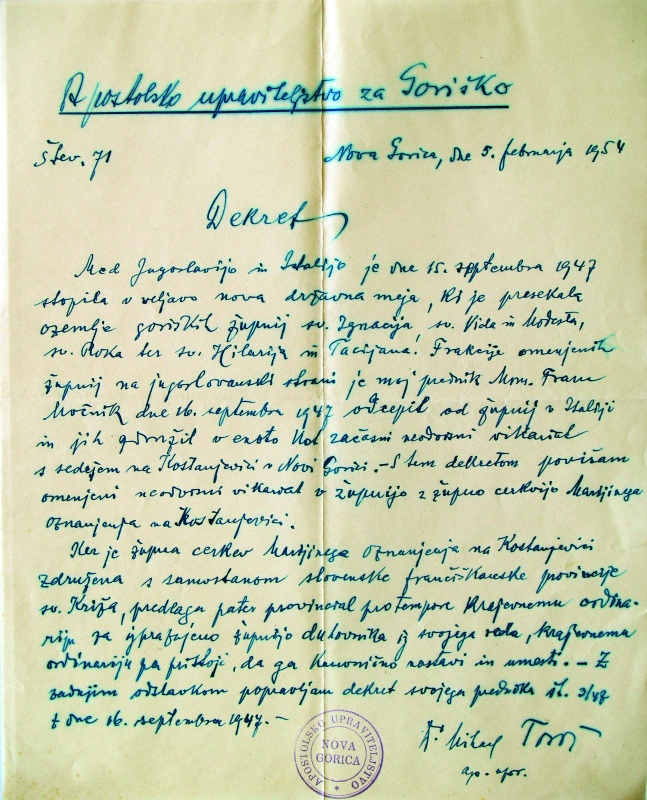 Apostolsko upraviteljstvo za Goriško
Štev. 71
Nova Gorica, dne 5. februarja 1954
Dekret
Med Jugoslavijo in Italijo je dne 15. septembra 1947
stopila v veljavo nova državna meja, ki je presekala
ozemlje goriških župnij sv. Ignacija, sv. Vida in Modesta,
sv. Roka ter sv. Hilarija in Tacijana. Frakcije omenjenih
župnij na jugoslovanski strani je moj prednik Mons. Franc
Močnik dne 16. septembra 1947 odcepil od župnij v Italiji
in jih združil v enoto kot začasni neodvisni vikariat
s sedežem na Kostanjevici v Novi Gorici. – S tem dekretom povišam
omenjeni neodvisni vikariat v župnijo z župno cerkvijo Marijinega
oznanjenja na Kostanjevici.
Ker je župna cerkev Marijinega oznanjenja na Kostanjevici
združena s samostanom slovenske frančiškanske province
sv. Križa, predlaga pater provincial pro tempore krajevnemu ordina-
riju za izpraznjeno župnijo duhovnika iz svojega reda, krajevnemu
ordinariju pa pristoji, da ga kanonično nastavi in umesti. – Z
zadnjim odstavkom popravljam dekret svojega prednika št. 3/47
z dne 16. septembra 1947. –
Mihael Toroš
ap. upr.
APOSTOLSKO UPRAVITELJSTVO
NOVA
GORICA